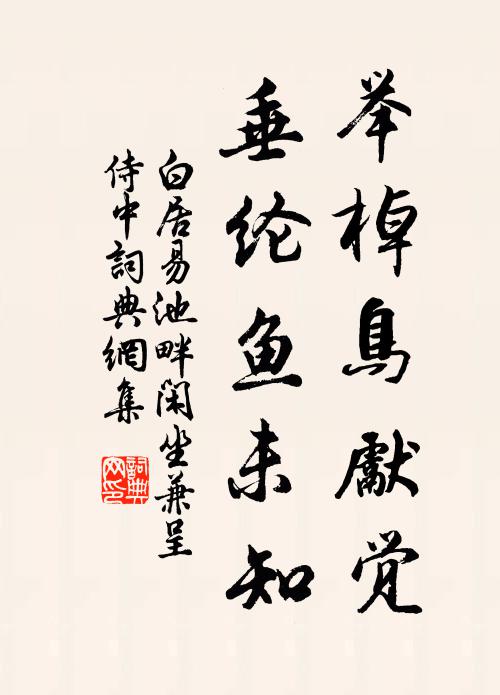 举棹鳥獻觉
垂纶鱼未知
白居易池畔闲坐兼呈
侍中詞典網集
詞典
网印